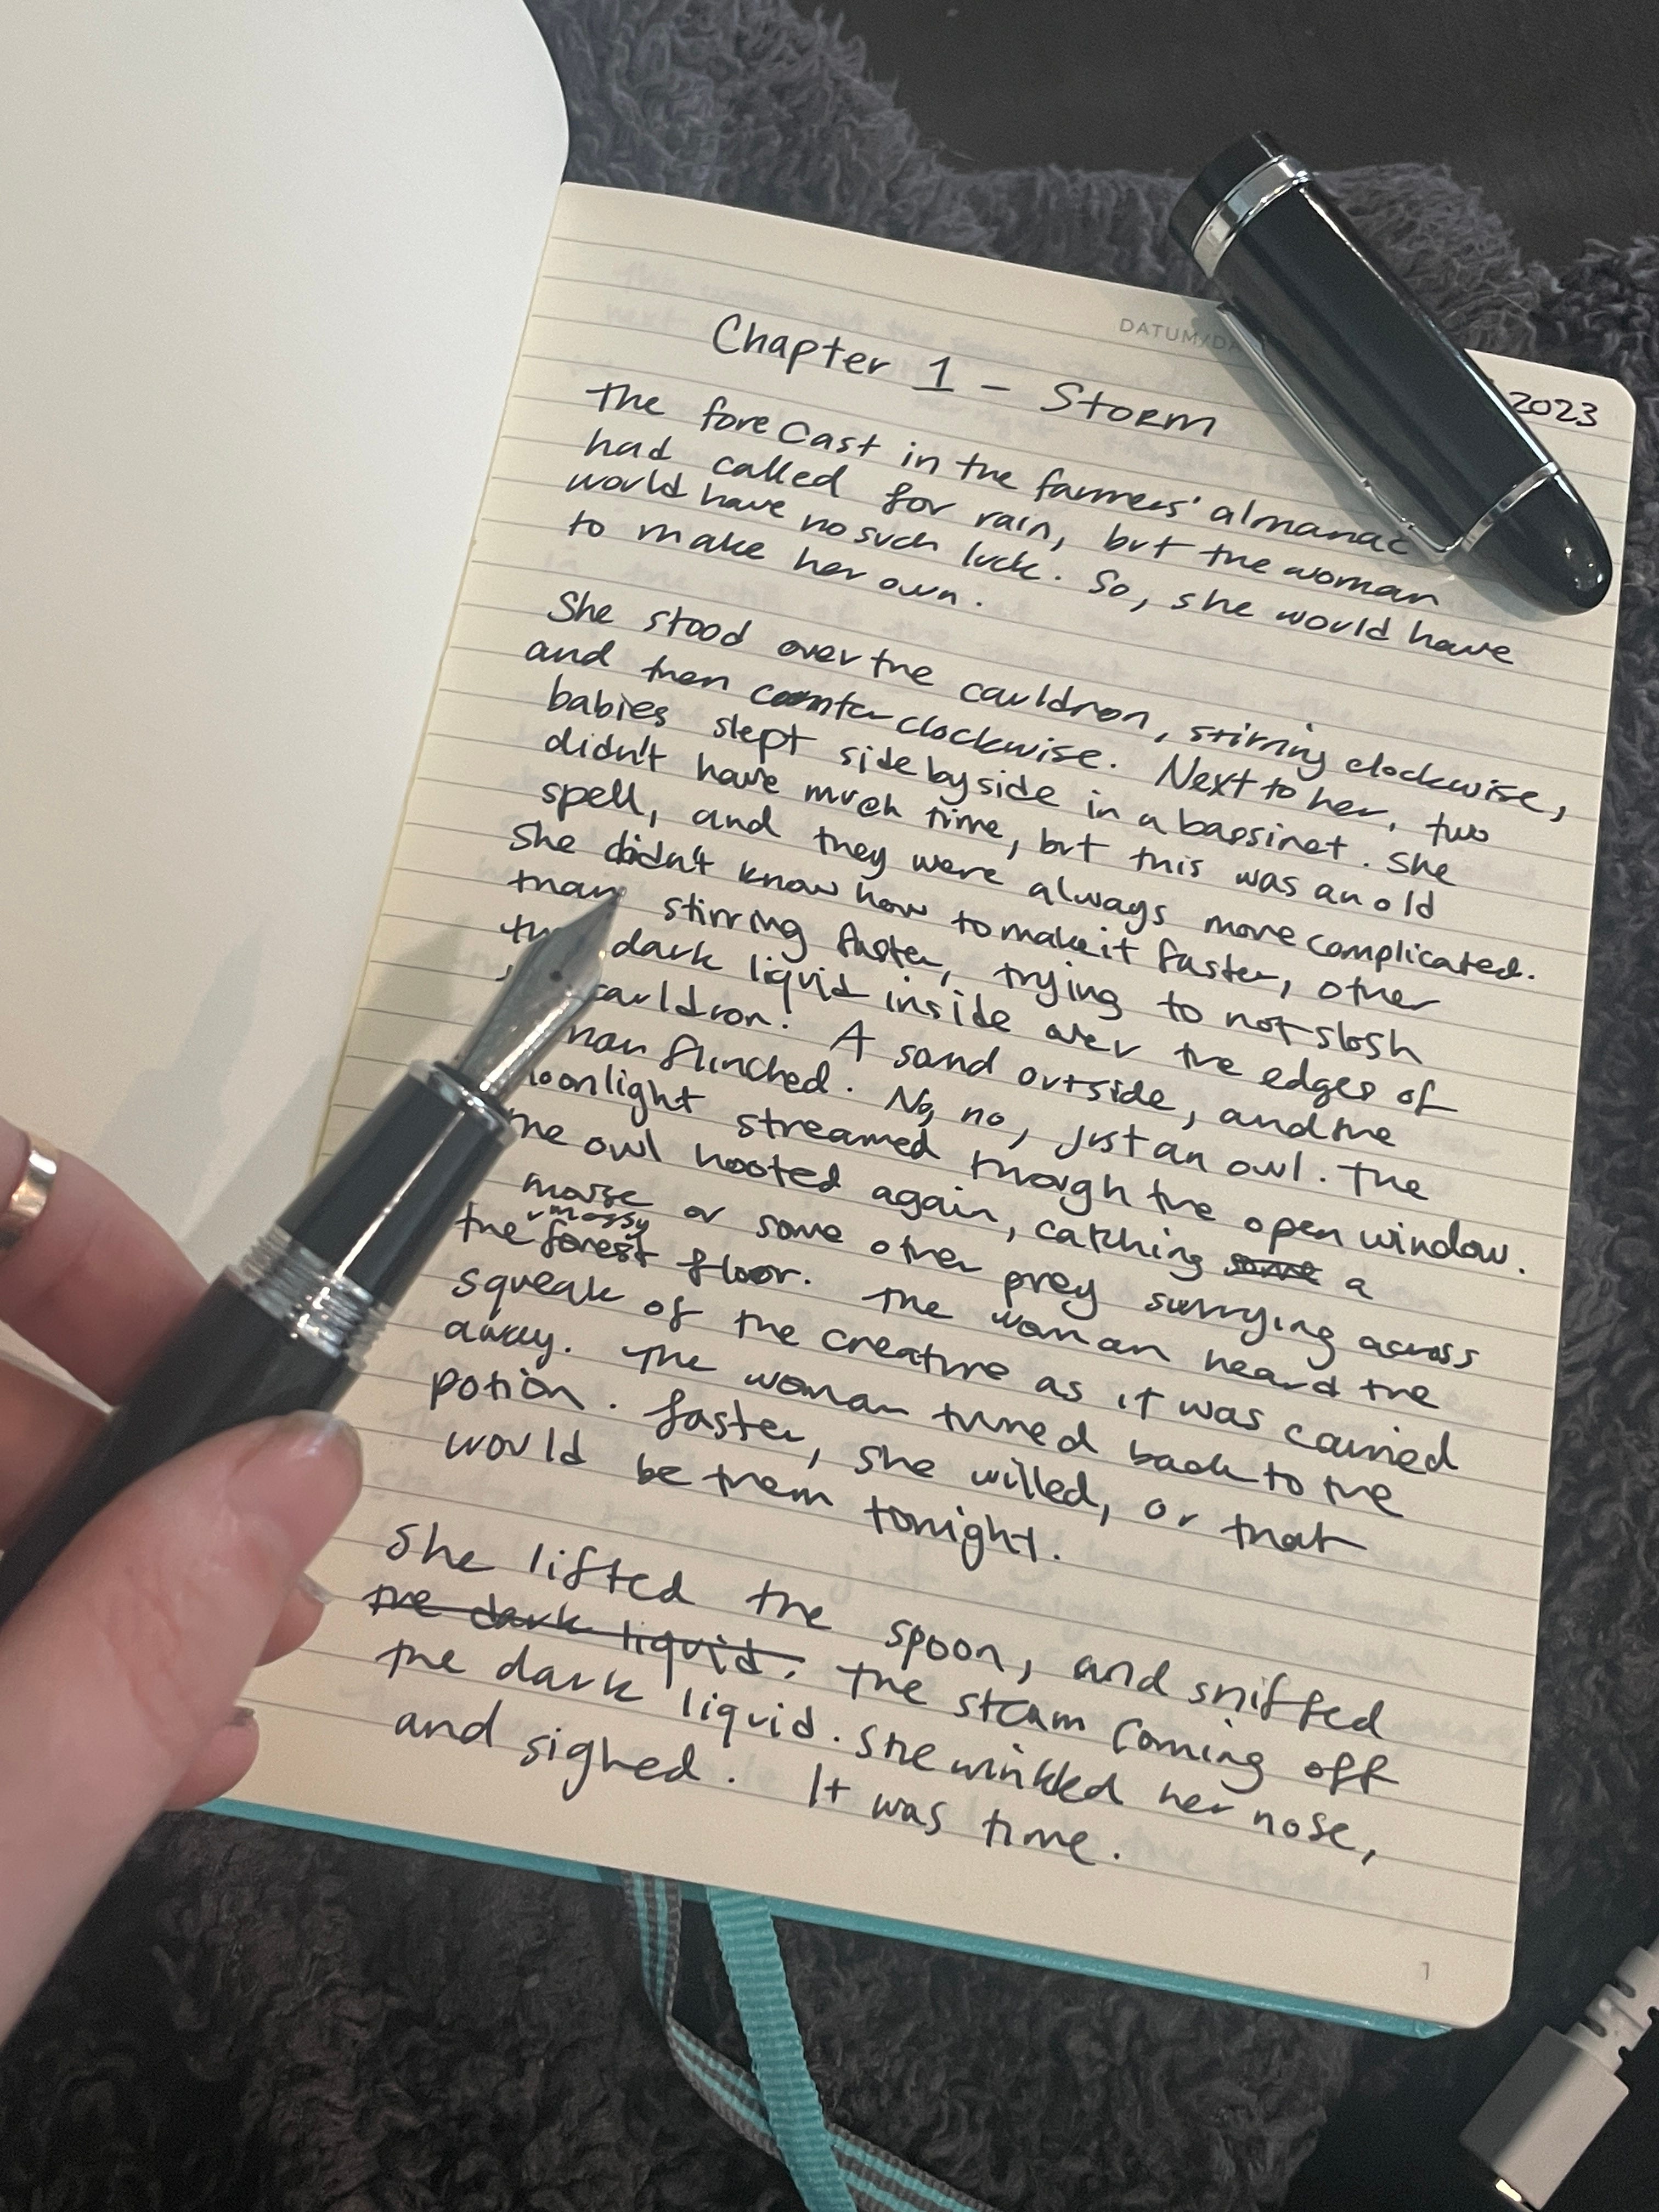 DATUM/DA
2023
Chapter 1 - Storm
The forecast in the farmers' almanac
had called for rain, but the woman
would have no such luck. So, she would have
to make her own.
She stood over the cauldron, stirring clockwise,
and then counter clockwise. Next to her, two
babies slept side by side in a bassinet. She
didn't have much time, but this was an old
spell, and they were always more complicated.
She didn't know how to make it faster, other
than stirring faster, trying to not slosh
the dark liquid inside over the edges of
cauldron. A sound outside, and the
flinched. No, no, just an owl. The
moonlight streamed through the open window.
The owl hooted again, catching some a
mouse or some other prey scurrying across
the mossy forest floor. The woman heard the
squeak of the creature as it was carried
away. The woman turned back to the
potion. faster, she willed, or that
would be them tonight.
She lifted the spoon, and sniffed
the dark liquid. The steam coming off
the dark liquid. She winkled her nose,
and sighed. It was time.
1